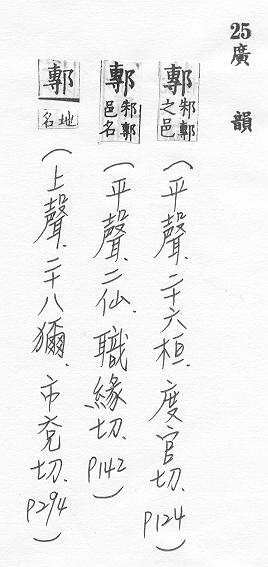 25 廣韻
鄟 邾鄟之邑 (平聲.二十六桓.度官切.P124)
鄟 邾鄟邑名 (平聲.二仙.職緣切.P142)
鄟 地名 (上聲.二十八獮.市兗切.P294)